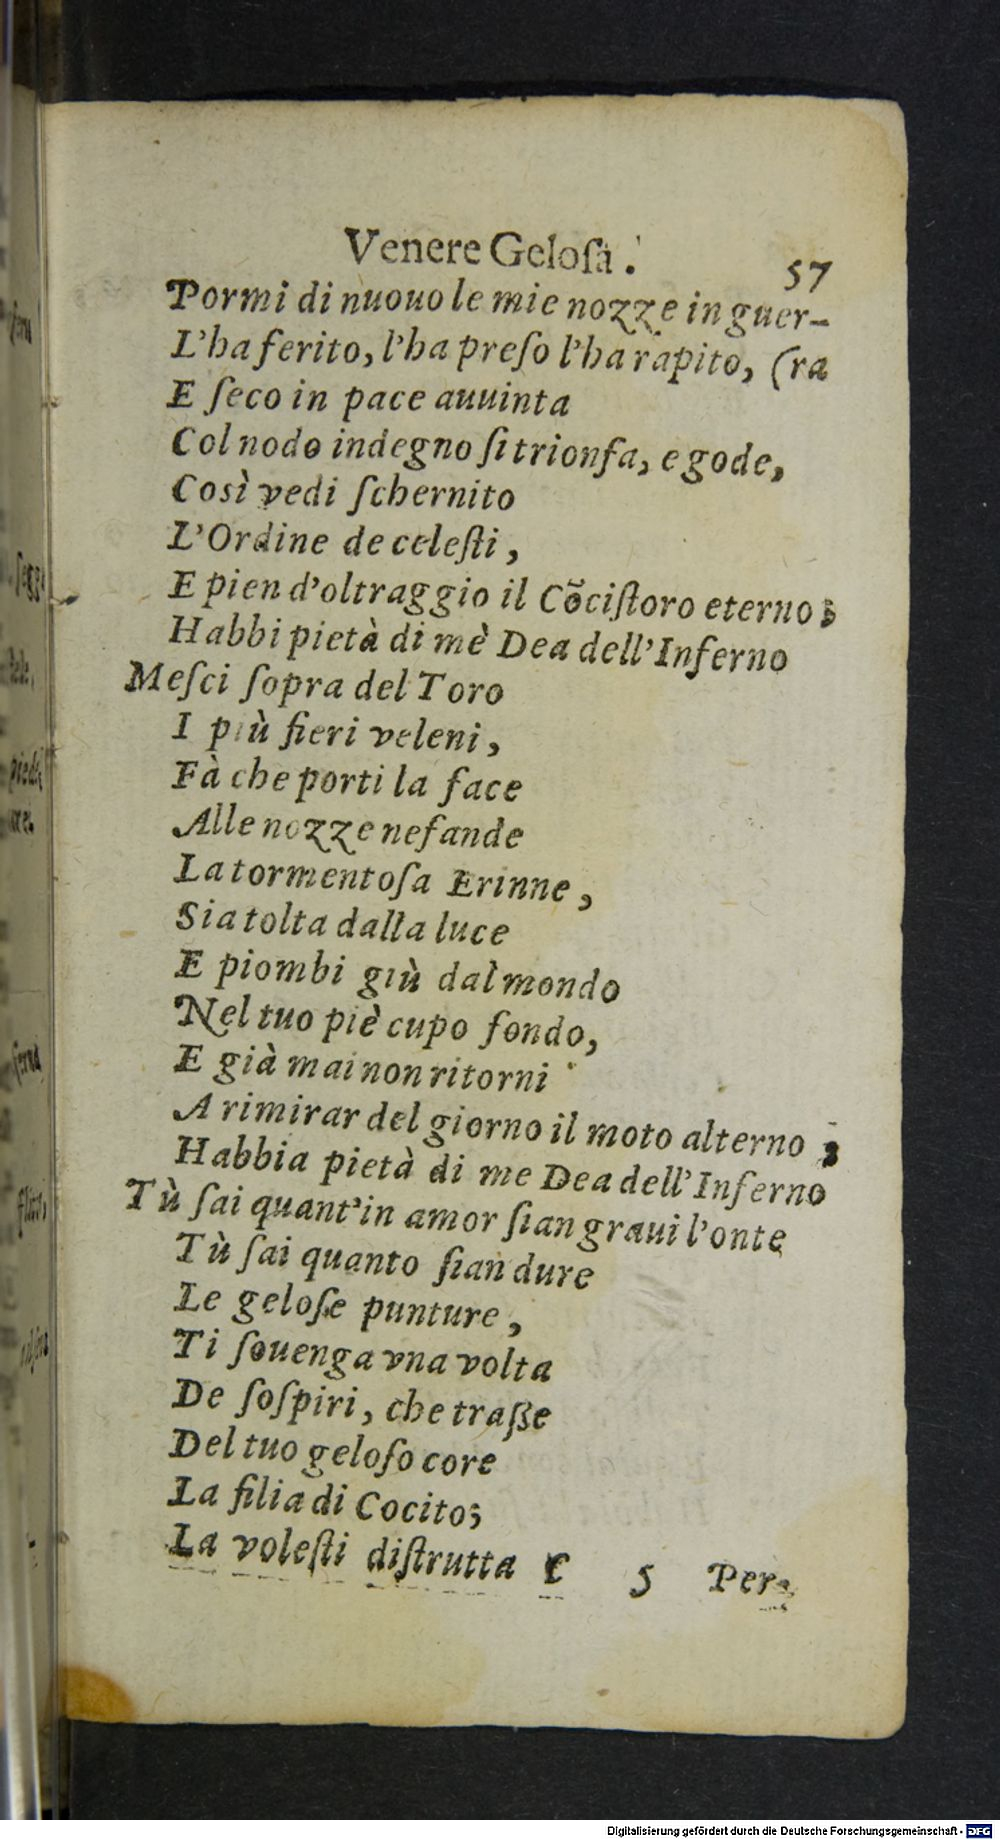 Venere Gelosa.
57
Pormi di nuouo le mie nozze in guer-
L'ha ferito, l'ha preſo l'ha rapito, (ra
E ſeco in pace auuinta
Col nodo indegno ſi trionfa, e gode,
Così vedi ſchernito
L'Ordine de celeſti,
E pien d'oltraggio il Cõciſtoro eterno;
Habbi pietà di mè Dea dell'Inferno
Meſci ſopra del Toro
I più fieri veleni,
Fà che porti la face
Alle nozze nefande
La tormentoſa Erinne,
Sia tolta dalla luce
E piombi giù dal mondo
Nel tuo piè cupo fondo,
E già mai non ritorni
A rimirar del giorno il moto alterno;
Habbia pietà di me Dea dell'Inferno
Tù ſai quant'in amor ſian graui l'onte
Tù ſai quanto ſian dure
Le geloſe punture,
Ti ſouenga vna volta
De ſoſpiri, che traſſe
Del tuo geloſo core
La filia di Cocito;
La voleſti diſtrutta C 5 Per
Digitalisierung gefördert durch die Deutsche Forschungsgemeinschaft - DFG